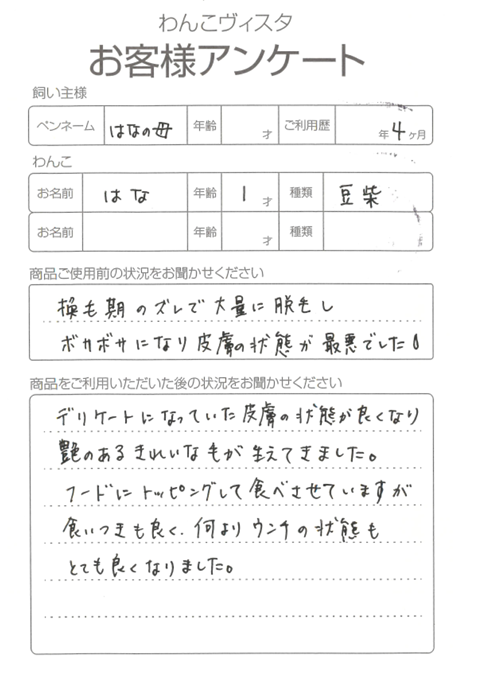 わんこヴィスタ
お客様アンケート
飼い主様
ペンネーム はなの母 年齢 才 ご利用歴 年 4 ヶ月
わんこ
お名前 はな 年齢 1 才 種類 豆柴
お名前 年齢 才 種類
商品ご使用前の状況をお聞かせください
換毛期のズレで大量に脱毛し
ボサボサになり皮膚の状態が最悪でした!
商品をご利用いただいた後の状況をお聞かせください
デリケートになっていた皮膚の状態が良くなり
艶のあるきれいな毛が生えてきました。
フードにトッピングして食べさせていますが
食いつきも良く、何よりウンチの状態も
とても良くなりました。